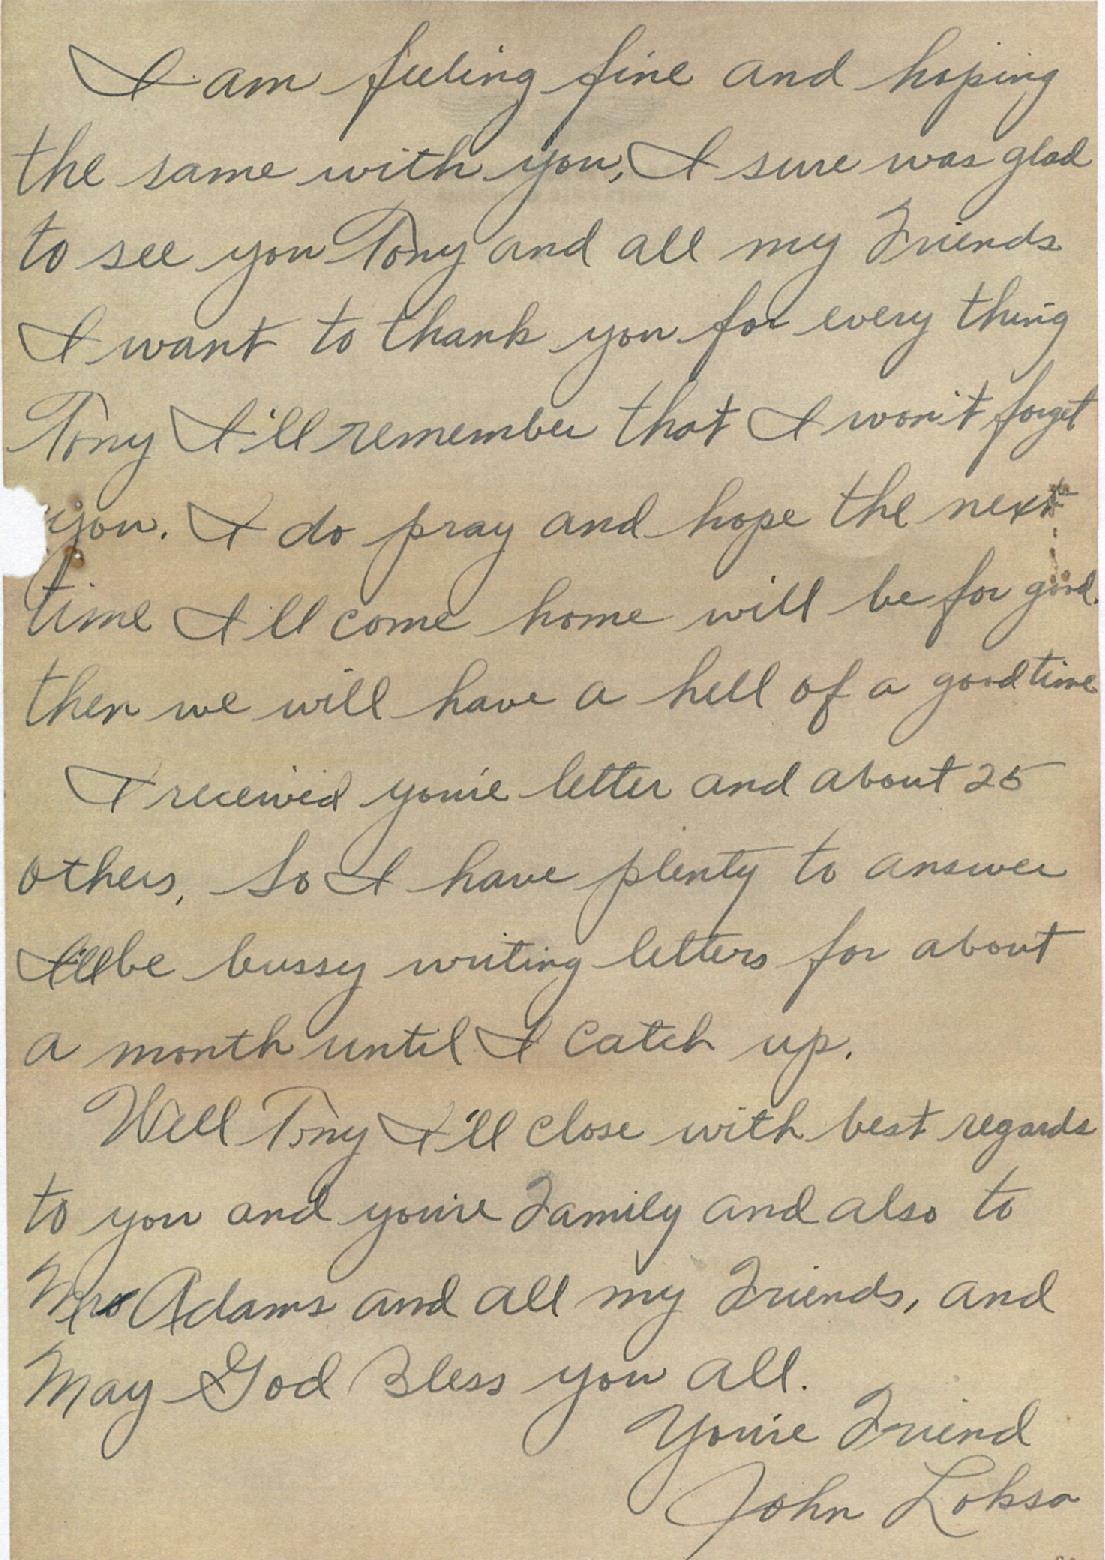 I am feeling fine and hoping
the same with you, I sure was glad
to see you Tony and all my Friends
I want to thank you for every thing
Tony I'll remember that I won't forget
you. I do pray and hope the next
time I'll come home will be for good.
then we will have a hell of a good time
I received you're letter and about 25
others, So I have plenty to answer
I'll be bussy writing letters for about
a month until I catch up.
Well Tony I'll close with best regards
to you and you're Family and also to
Mrs Adams and all my Friends, and
May God Bless you all.
You're Friend
John Loksa